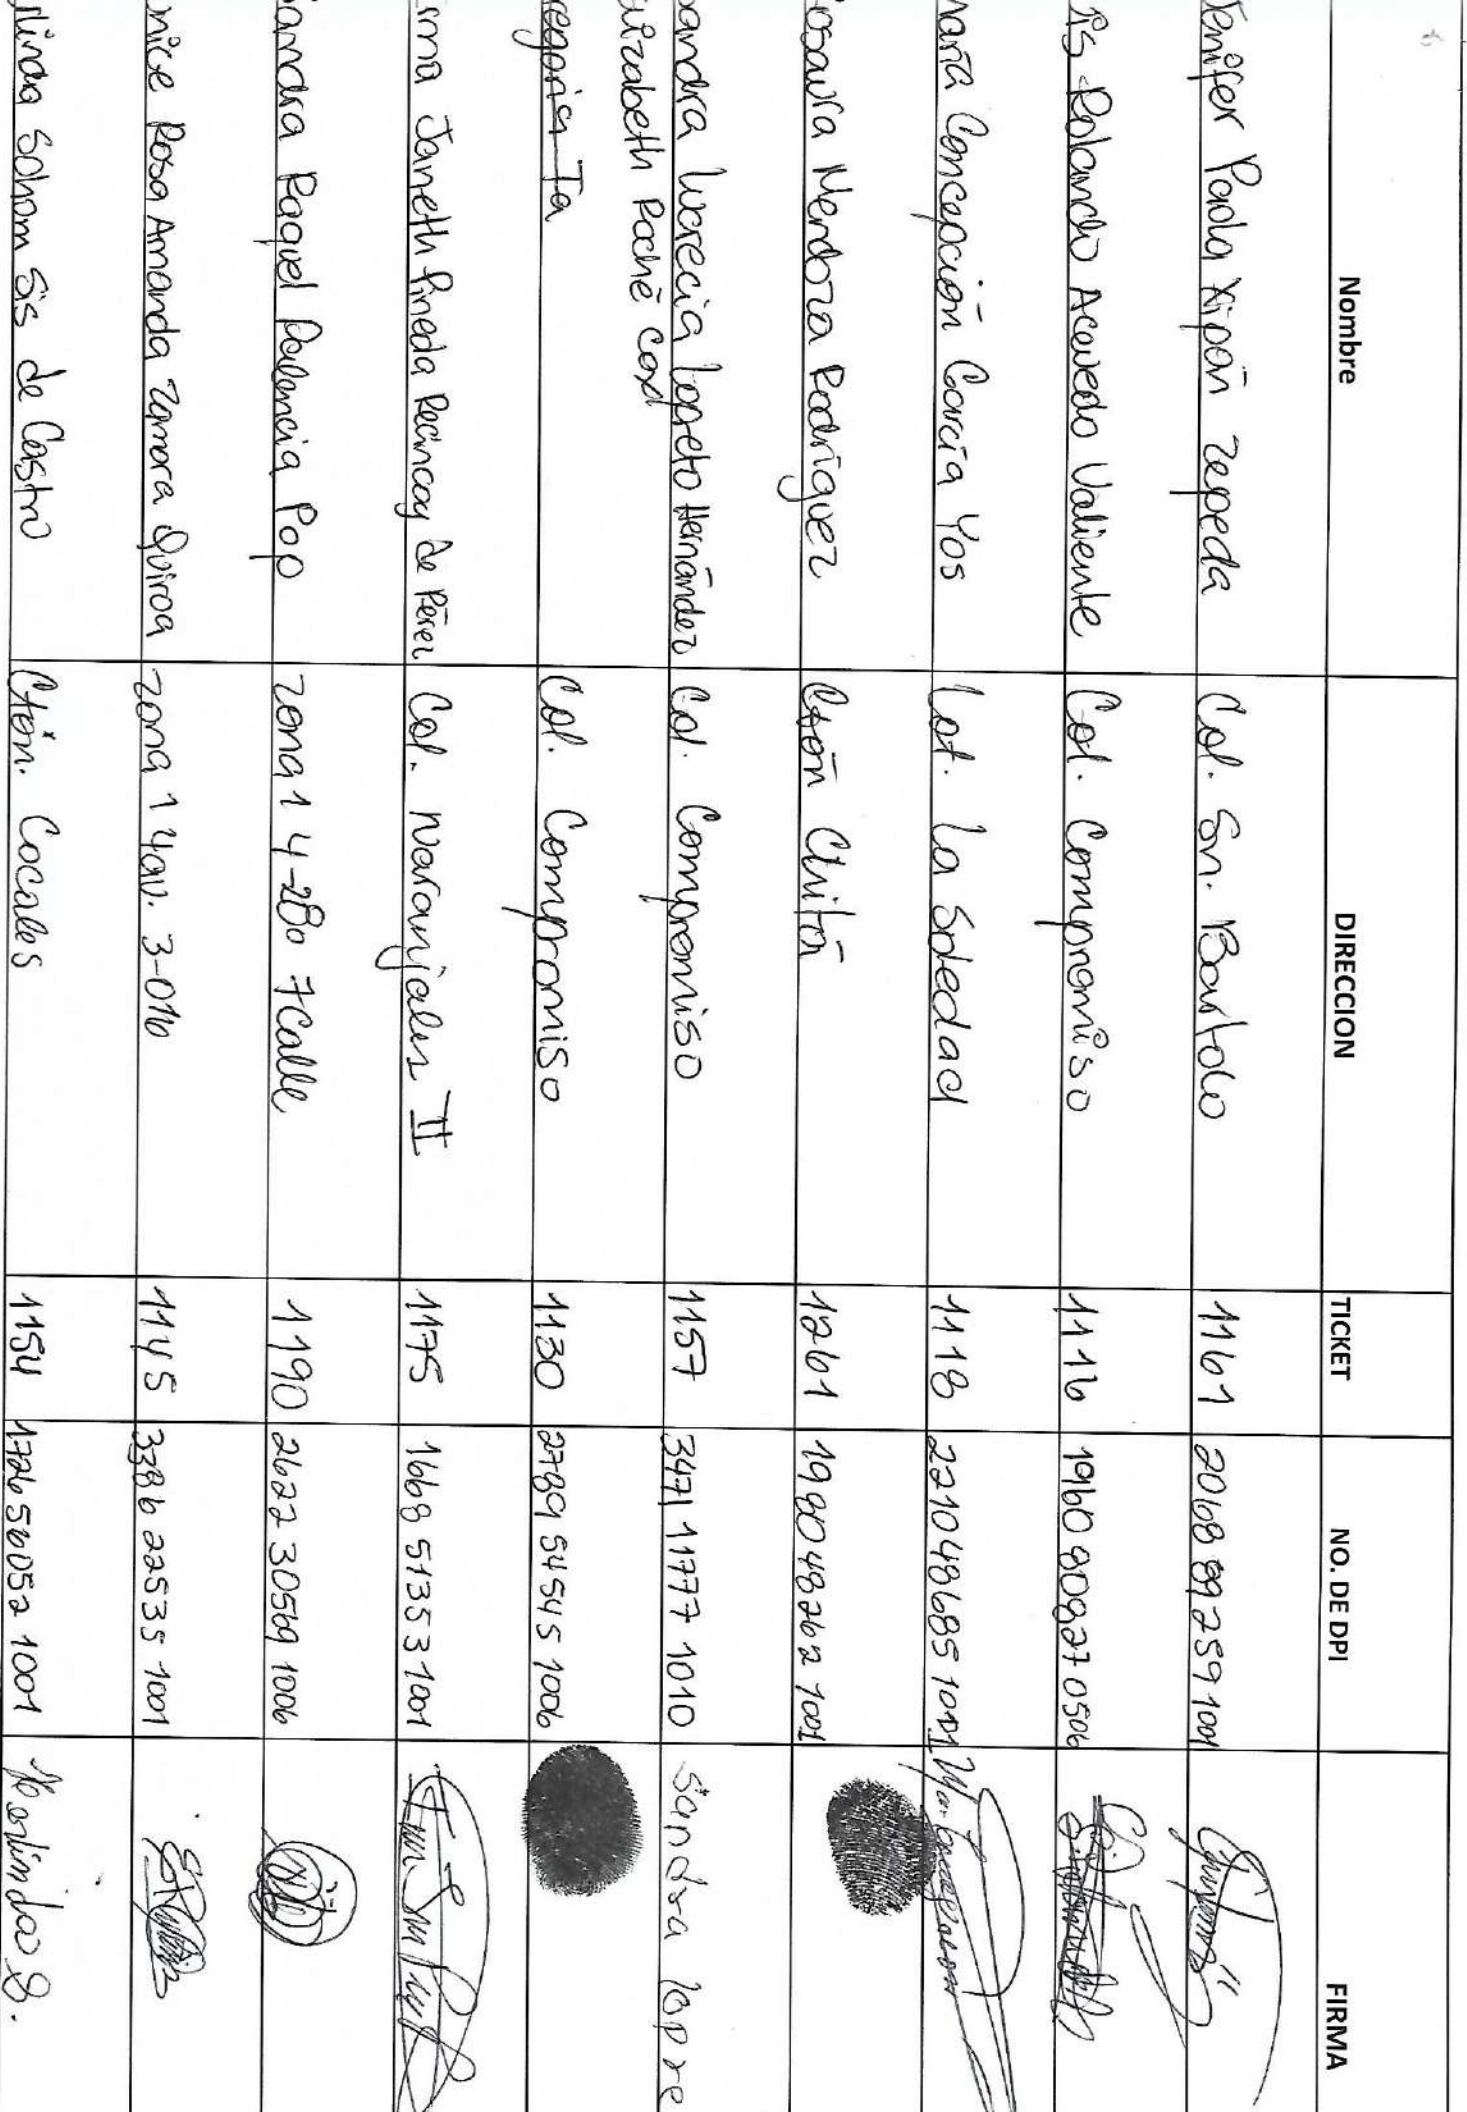 Nombre DIRECCION TICKET NO. DE DPI FIRMA
Jenifer Paola Xipán Zepeda Col. Sn. Bartolo 1161 2068 89259 1001
is Rolando Acevedo Valiente Col. Compromiso 1116 1960 80827 0506
María Concepción García Yos Lot. La Soledad 1118 2210 48685 1001
osaura Mendoza Rodríguez Ctón Chitá 1261 1980 48262 1001
andra Lucrecia Lopreto Hernández Col. Compromiso 1157 3471 11777 1010 Sandra lopre
lizabeth Paché Coxd
egoria Ta Col. Compromiso 1130 2789 54545 1006
rma Janeth Pineda Recincoy de Pérez Col. Naranjales II 1175 1668 51353 1001
andra Raquel Palencia Pop zona 1 4-280 7 Calle 1190 2622 30569 1006
nice Rosa Amanda Zamora Quiroa zona 1 4av. 3-016 1145 3386 22535 1001
rlinda Sohom Sis de Castro Ctón. Cocales 1154 1726 56052 1001 Herlinda S.